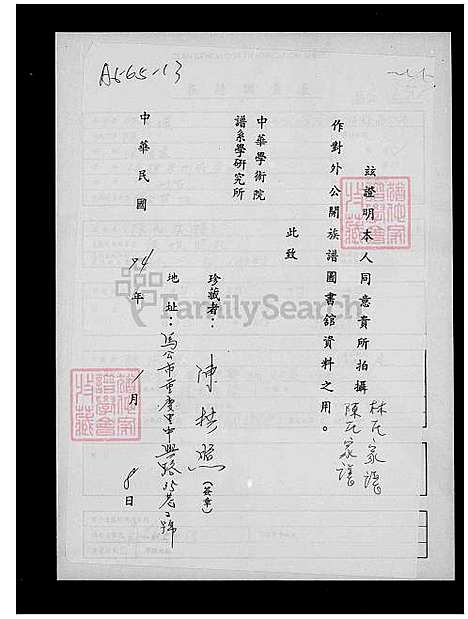 A565-13
玆證明本人同意貴所拍攝林氏家譜
陳氏家譜
作對外公開族譜圖書館資料之用。
此致
中華學術院
譜系學研究所
珍藏者：陳 照（簽章）
地址：馬公市重慶里中興路 巷 號
中華民國74年1月8日
FamilySearch